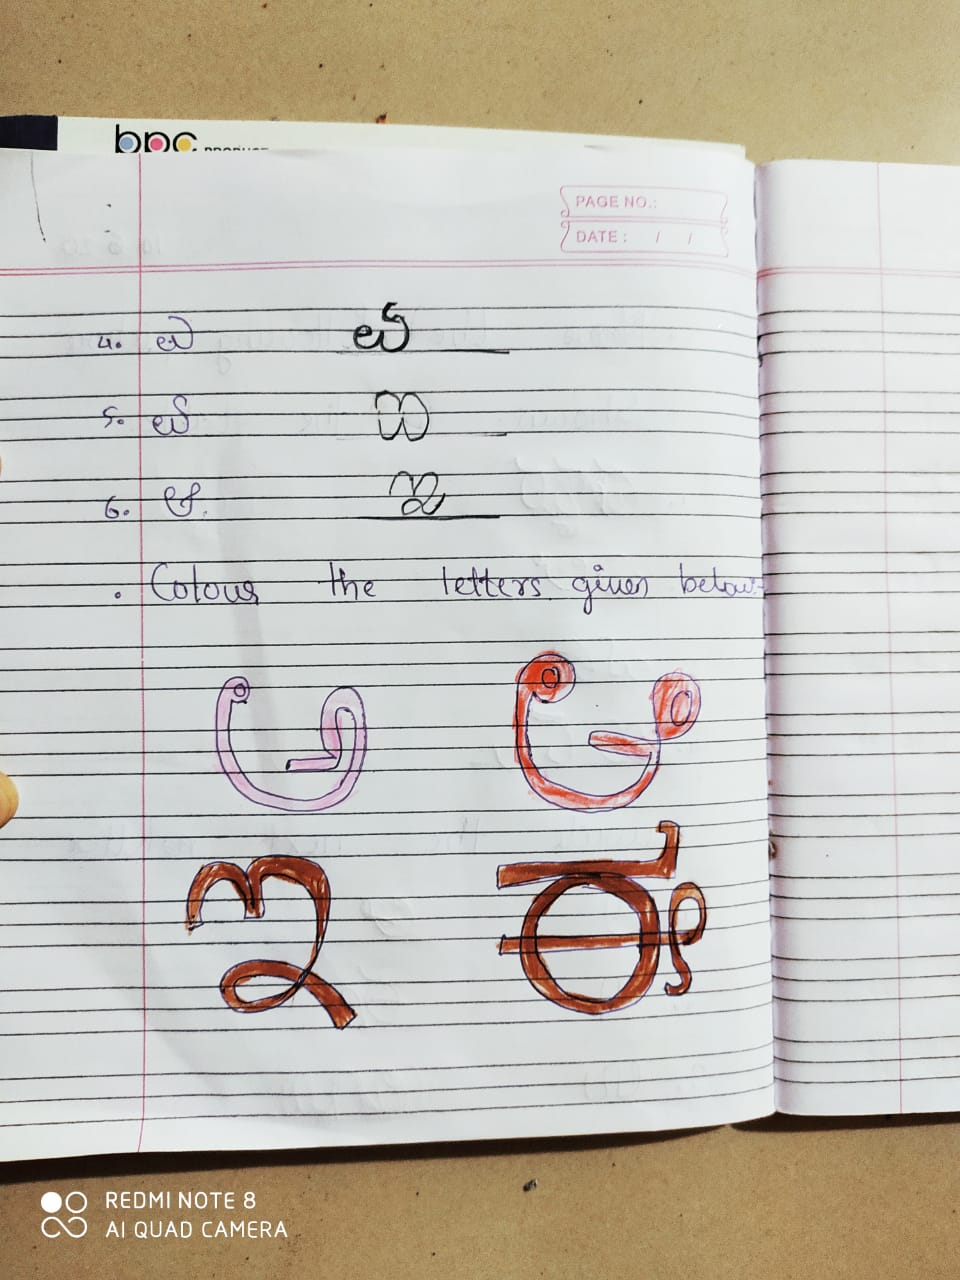 bpc
PAGE NO.:
DATE : / /
4. ಎ ಏ
5. ಏ ಐ
6. ಆ. ಇ
. Colour the letters given below:-
ಅ ಆ
ಇ ಈ
REDMI NOTE 8
AI QUAD CAMERA